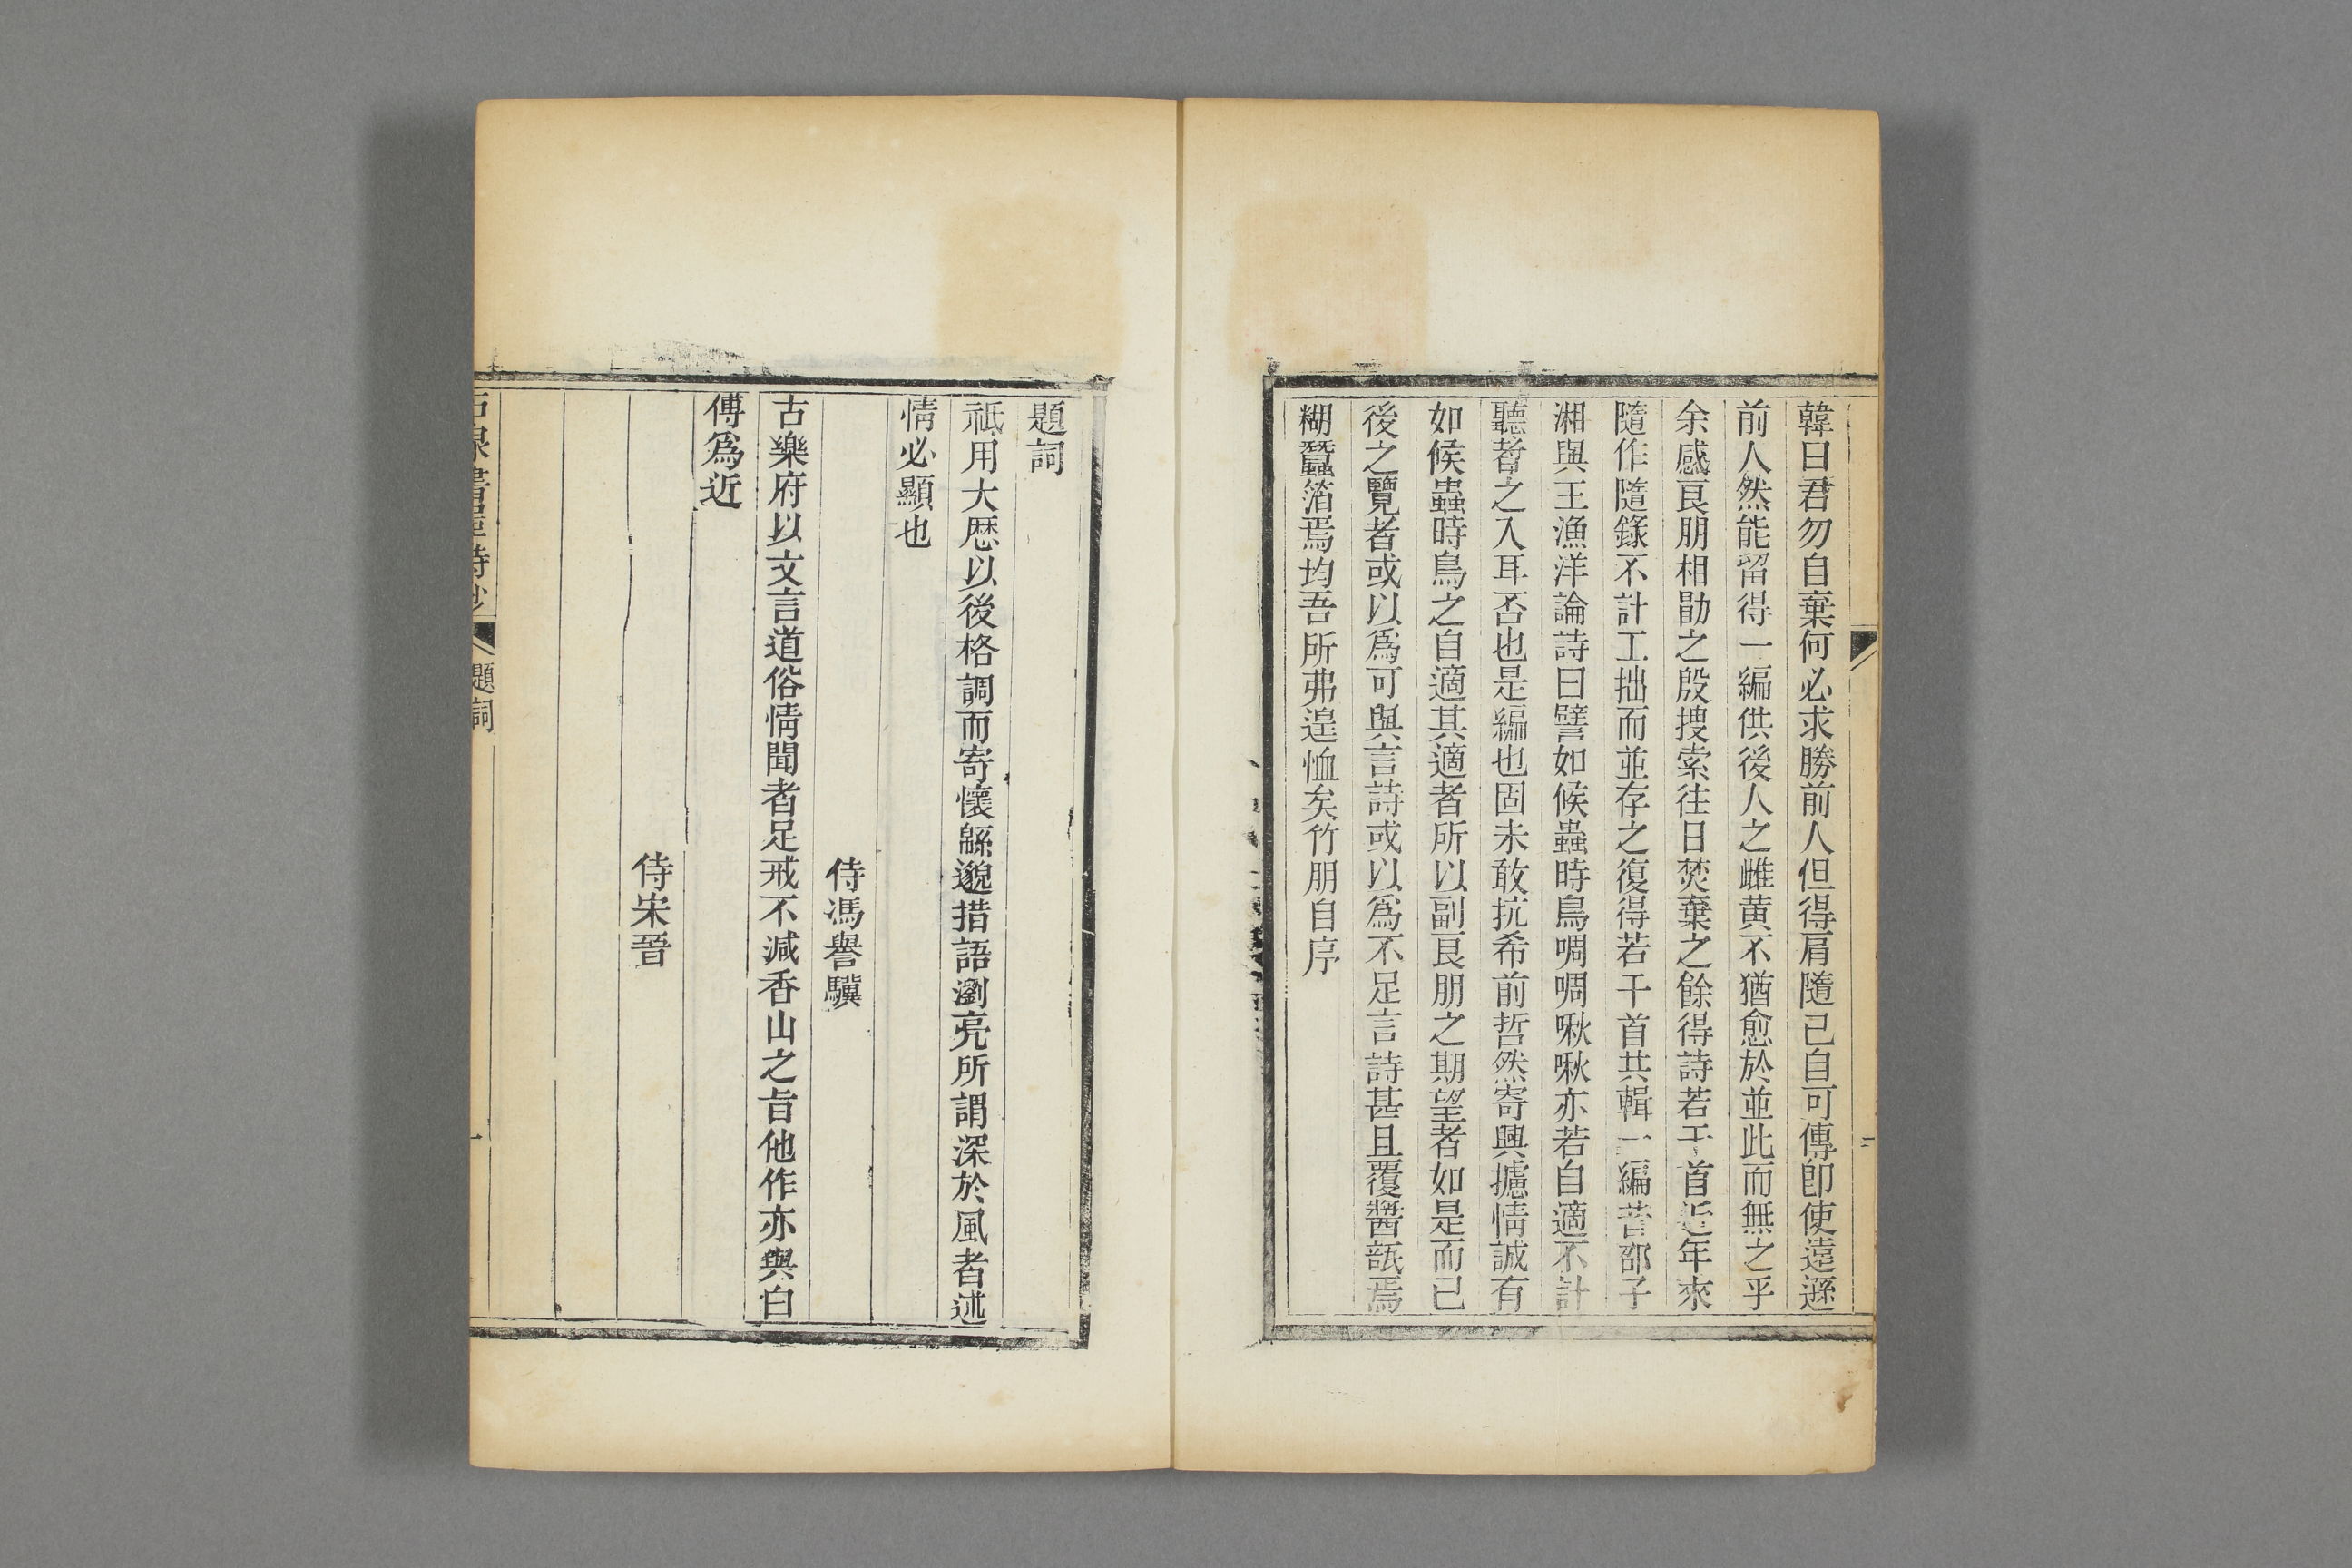 韓曰君勿自棄何必求勝前人但得肩隨己自可傳卽使遠遜
前人然能留得一編供後人之雌黄不猶愈於並此而無之乎
余感良朋相勖之殷搜索往日焚棄之餘得詩若干首近年來
隨作隨錄不計工拙而並存之復得若干首共輯一編昔邵子
湘與王漁洋論詩曰譬如候蟲時鳥啁啁啾啾亦若自適不計
聽者之入耳否也是編也固未敢抗希前哲然寄興攄情誠有
如候蟲時鳥之自適其適者所以副良朋之期望者如是而己
後之覽者或以爲可與言詩或以爲不足言詩甚且覆醬瓿焉
糊蠶箔焉均吾所弗遑恤矣竹朋自序
二
題詞
祗用大厯以後格調而寄懷緜邈措語瀏亮所謂深於風者述
情必顯也
侍馮譽驥
古樂府以文言道俗情聞者足戒不減香山之旨他作亦與白
傅爲近
侍宋晉
石泉書屋詩鈔
題詞
一